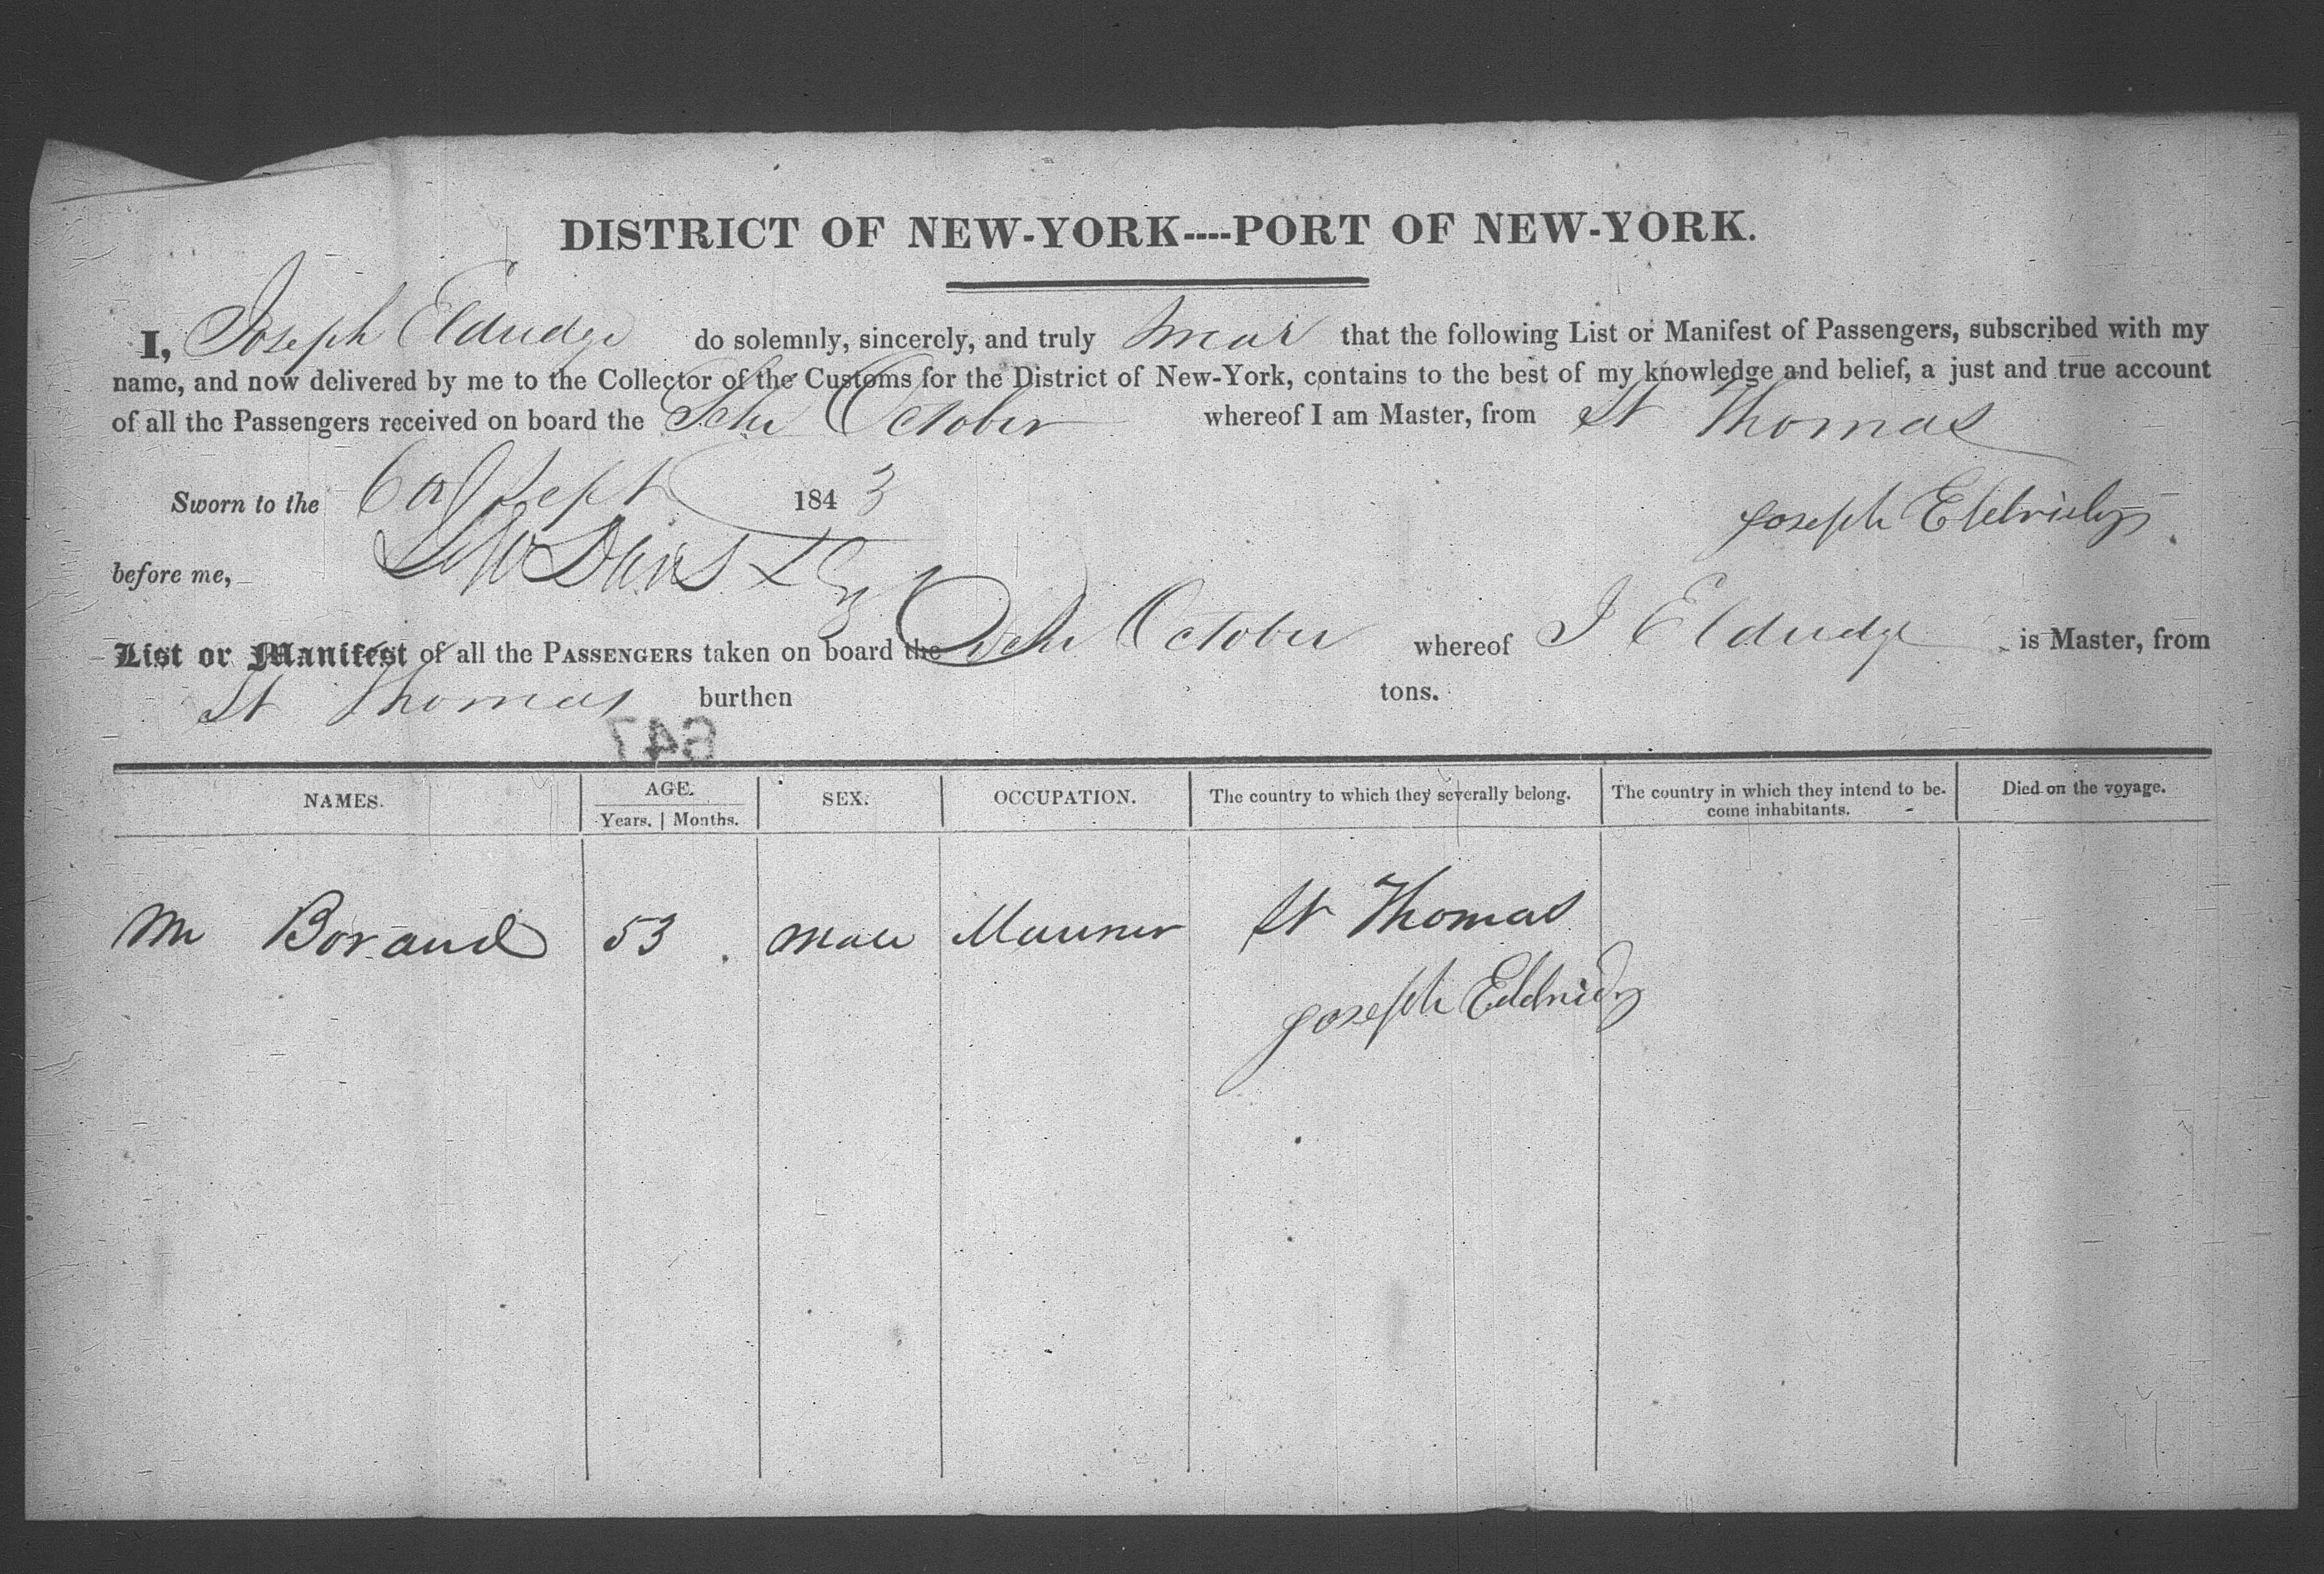 DISTRICT OF NEW-YORK----PORT OF NEW-YORK.
I, Joseph Eldridge do solemnly, sincerely, and truly swear that the following List or Manifest of Passengers, subscribed with my
name, and now delivered by me to the Collector of the Customs for the District of New-York, contains to the best of my knowledge and belief, a just and true account
of all the Passengers received on board the Schr October whereof I am Master, from St Thomas
Sworn to the 6 Sept 1843
Joseph Eldridge
before me,
List or Manifest of all the PASSENGERS taken on board the Schr October whereof J Eldridge is Master, from
St Thomas burthen tons.
647
NAMES. AGE. SEX. OCCUPATION. The country to which they severally belong. The country in which they intend to be- Died on the voyage.
Years. Months. come inhabitants.
Mr Borand 53 Male Mariner St Thomas
Joseph Eldridge